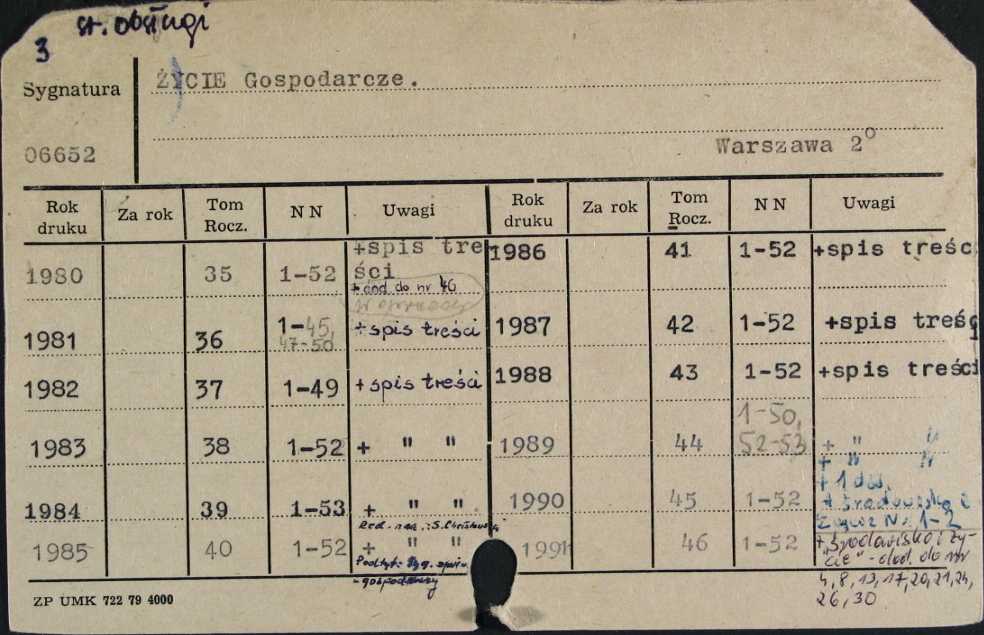 st. obsługi
3
Sygnatura
ŻYCIE Gospodarcze.
06652
Warszawa 2°
Rok druku Za rok Tom Rocz. N N Uwagi Rok druku Za rok Tom Rocz. N N Uwagi
1980 35 1-52 +spis treści
+ dod. do nr 46
1981 36 1-45, 47-50 +spis treści
1982 37 1-49 +spis treści
1983 38 1-52 + " "
1984 39 1-53 + " "
Red. nacz.: S.
1985 40 1-52 + " "
Podtyt.: Tyg.
-gospodarczy
1986 41 1-52 +spis treści
1987 42 1-52 +spis treść
1988 43 1-52 +spis treści
1989 44 1-50, 52-53 + " "
1990 45 1-52 + " "
+ 1 dod.
+ Środowisko i
Życie Nr 1-2
1991 46 1-52 + "Środowisko i Ży-
cie" - dod. do nr
4, 8, 13, 17, 20, 21, 24,
26, 30
ZP UMK 722 79 4000